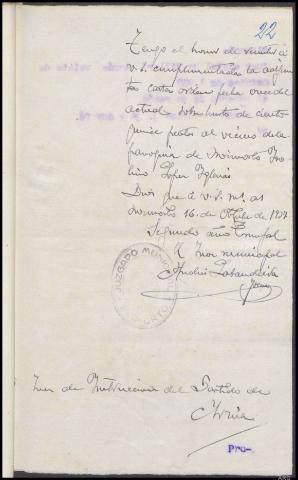 22
Tengo el honor de remitir á
V.S. cumplimentada la adjun
ta carta orden fecha once del
actual sobre hurto de ciento
quince pesetas al vecino de la
parroquia de Boimorto
López Iglesias
Dios gue á V.S. ms. as
Boimorto 16 de Octubre de 1937
Segundo año Triunfal
El Juez municipal
Andrés Labandeira
JUZGADO MUNICIPAL
Juez de Instrucción del Partido de
Arzúa
Pro-